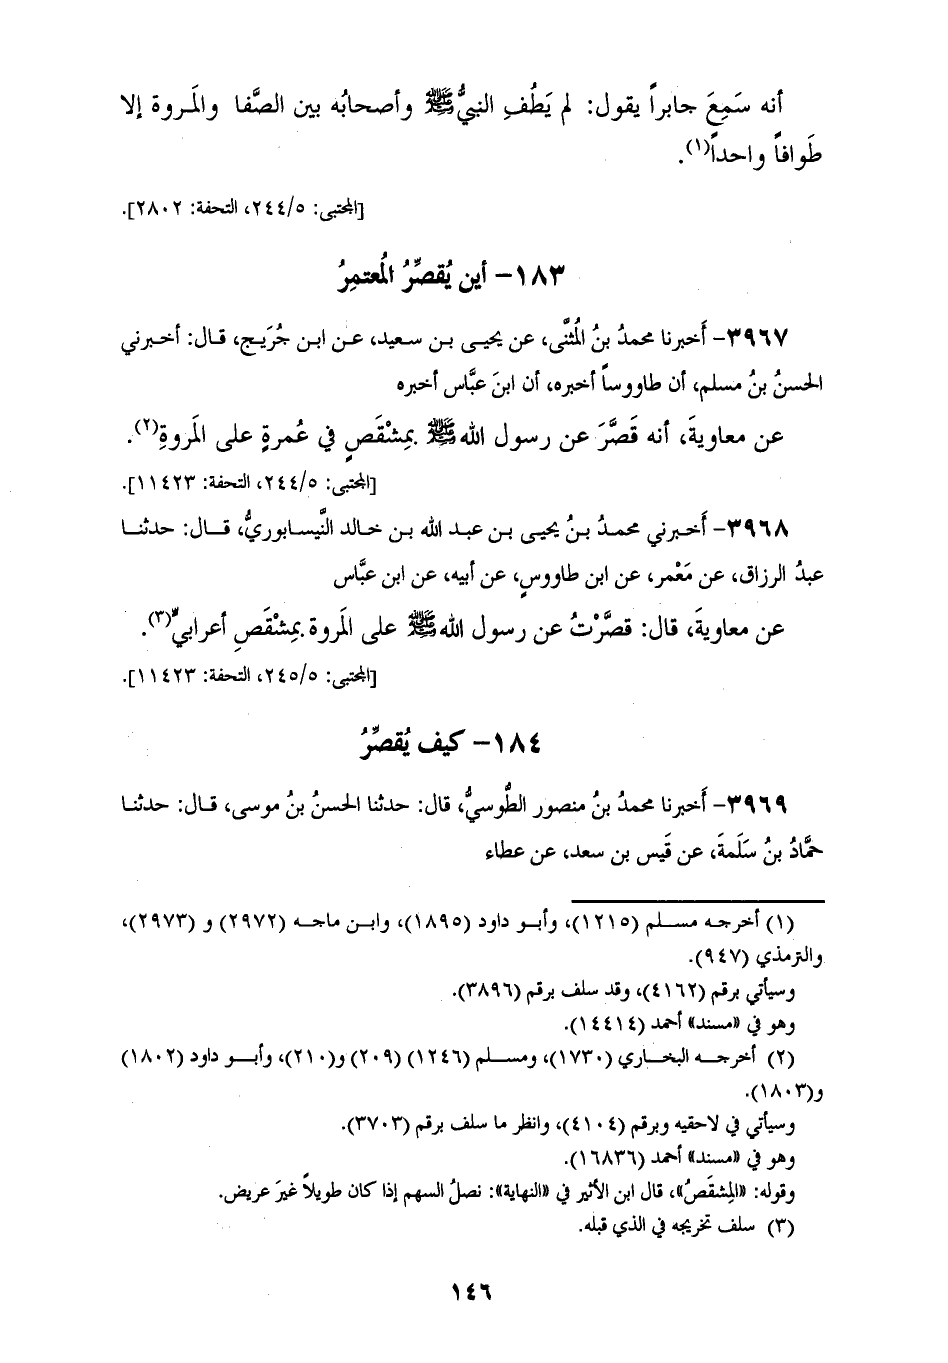 أنه سَمِعَ جابراً يقول: لم يَطُفِ النبيُّ ﷺ وأصحابُه بين الصَّفا والمَروة إلا
طَوافاً واحداً(١).
[المجتبى: ٢٤٤/٥، التحفة: ٢٨٠٢].
١٨٣- أين يُقصِّرُ المُعتمِرُ
٣٩٦٧- أَخبرنا محمدُ بنُ المُثنَّى، عن يحيى بن سعيد، عن ابن جُرَيج، قال: أخبرني
الحسنُ بنُ مسلم، أن طاووساً أخبره، أن ابنَ عبَّاس أخبره
عن معاويةَ، أنه قَصَّرَ عن رسول الله ﷺ بمِشْقَصٍ في عُمرةٍ على المَروةِ(٢).
[المجتبى: ٢٤٤/٥، التحفة: ١١٤٢٣].
٣٩٦٨- أَخبرني محمدُ بنُ يحيى بن عبد الله بن خالد النَّيسابوريُّ، قال: حدثنا
عبدُ الرزاق، عن مَعْمر، عن ابن طاووسٍ، عن أبيه، عن ابن عبَّاس
عن معاويةَ، قال: قصَّرْتُ عن رسول الله ﷺ على المَروة بمِشْقَصِ أعرابيٍّ(٣).
[المجتبى: ٢٤٥/٥، التحفة: ١١٤٢٣].
١٨٤- كيف يُقصِّرُ
٣٩٦٩- أَخبرنا محمدُ بنُ منصور الطُّوسيُّ، قال: حدثنا الحسنُ بنُ موسى، قال: حدثنا
حمَّادُ بنُ سَلَمةَ، عن قَيس بن سعد، عن عطاء
(١) أخرجه مسلم (١٢١٥)، وأبو داود (١٨٩٥)، وابن ماجه (٢٩٧٢) و (٢٩٧٣)،
والترمذي (٩٤٧).
وسيأتي برقم (٤١٦٢)، وقد سلف برقم (٣٨٩٦).
وهو في «مسند» أحمد (١٤٤١٤).
(٢) أخرجه البخاري (١٧٣٠)، ومسلم (١٢٤٦) (٢٠٩) و(٢١٠)، وأبو داود (١٨٠٢)
و(١٨٠٣).
وسيأتي في لاحقيه وبرقم (٤١٠٤)، وانظر ما سلف برقم (٣٧٠٣).
وهو في «مسند» أحمد (١٦٨٣٦).
وقوله: «المِشقَصُ»، قال ابن الأثير في «النهاية»: نصلُ السهم إذا كان طويلاً غيرَ عريض.
(٣) سلف تخريجه في الذي قبله.
١٤٦